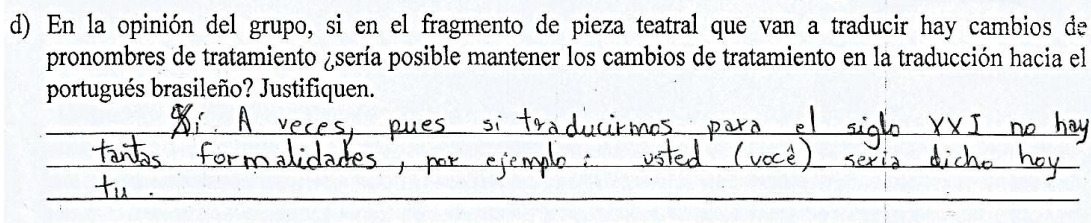 d) En la opinión del grupo, si en el fragmento de pieza teatral que van a traducir hay cambios de
pronombres de tratamiento ¿sería posible mantener los cambios de tratamiento en la traducción hacia el
portugués brasileño? Justifiquen.
Sí. A veces, pues si traducirmos para el siglo XXI no hay
tantas formalidades, por ejemplo: usted (você) seria dicho hoy
tu